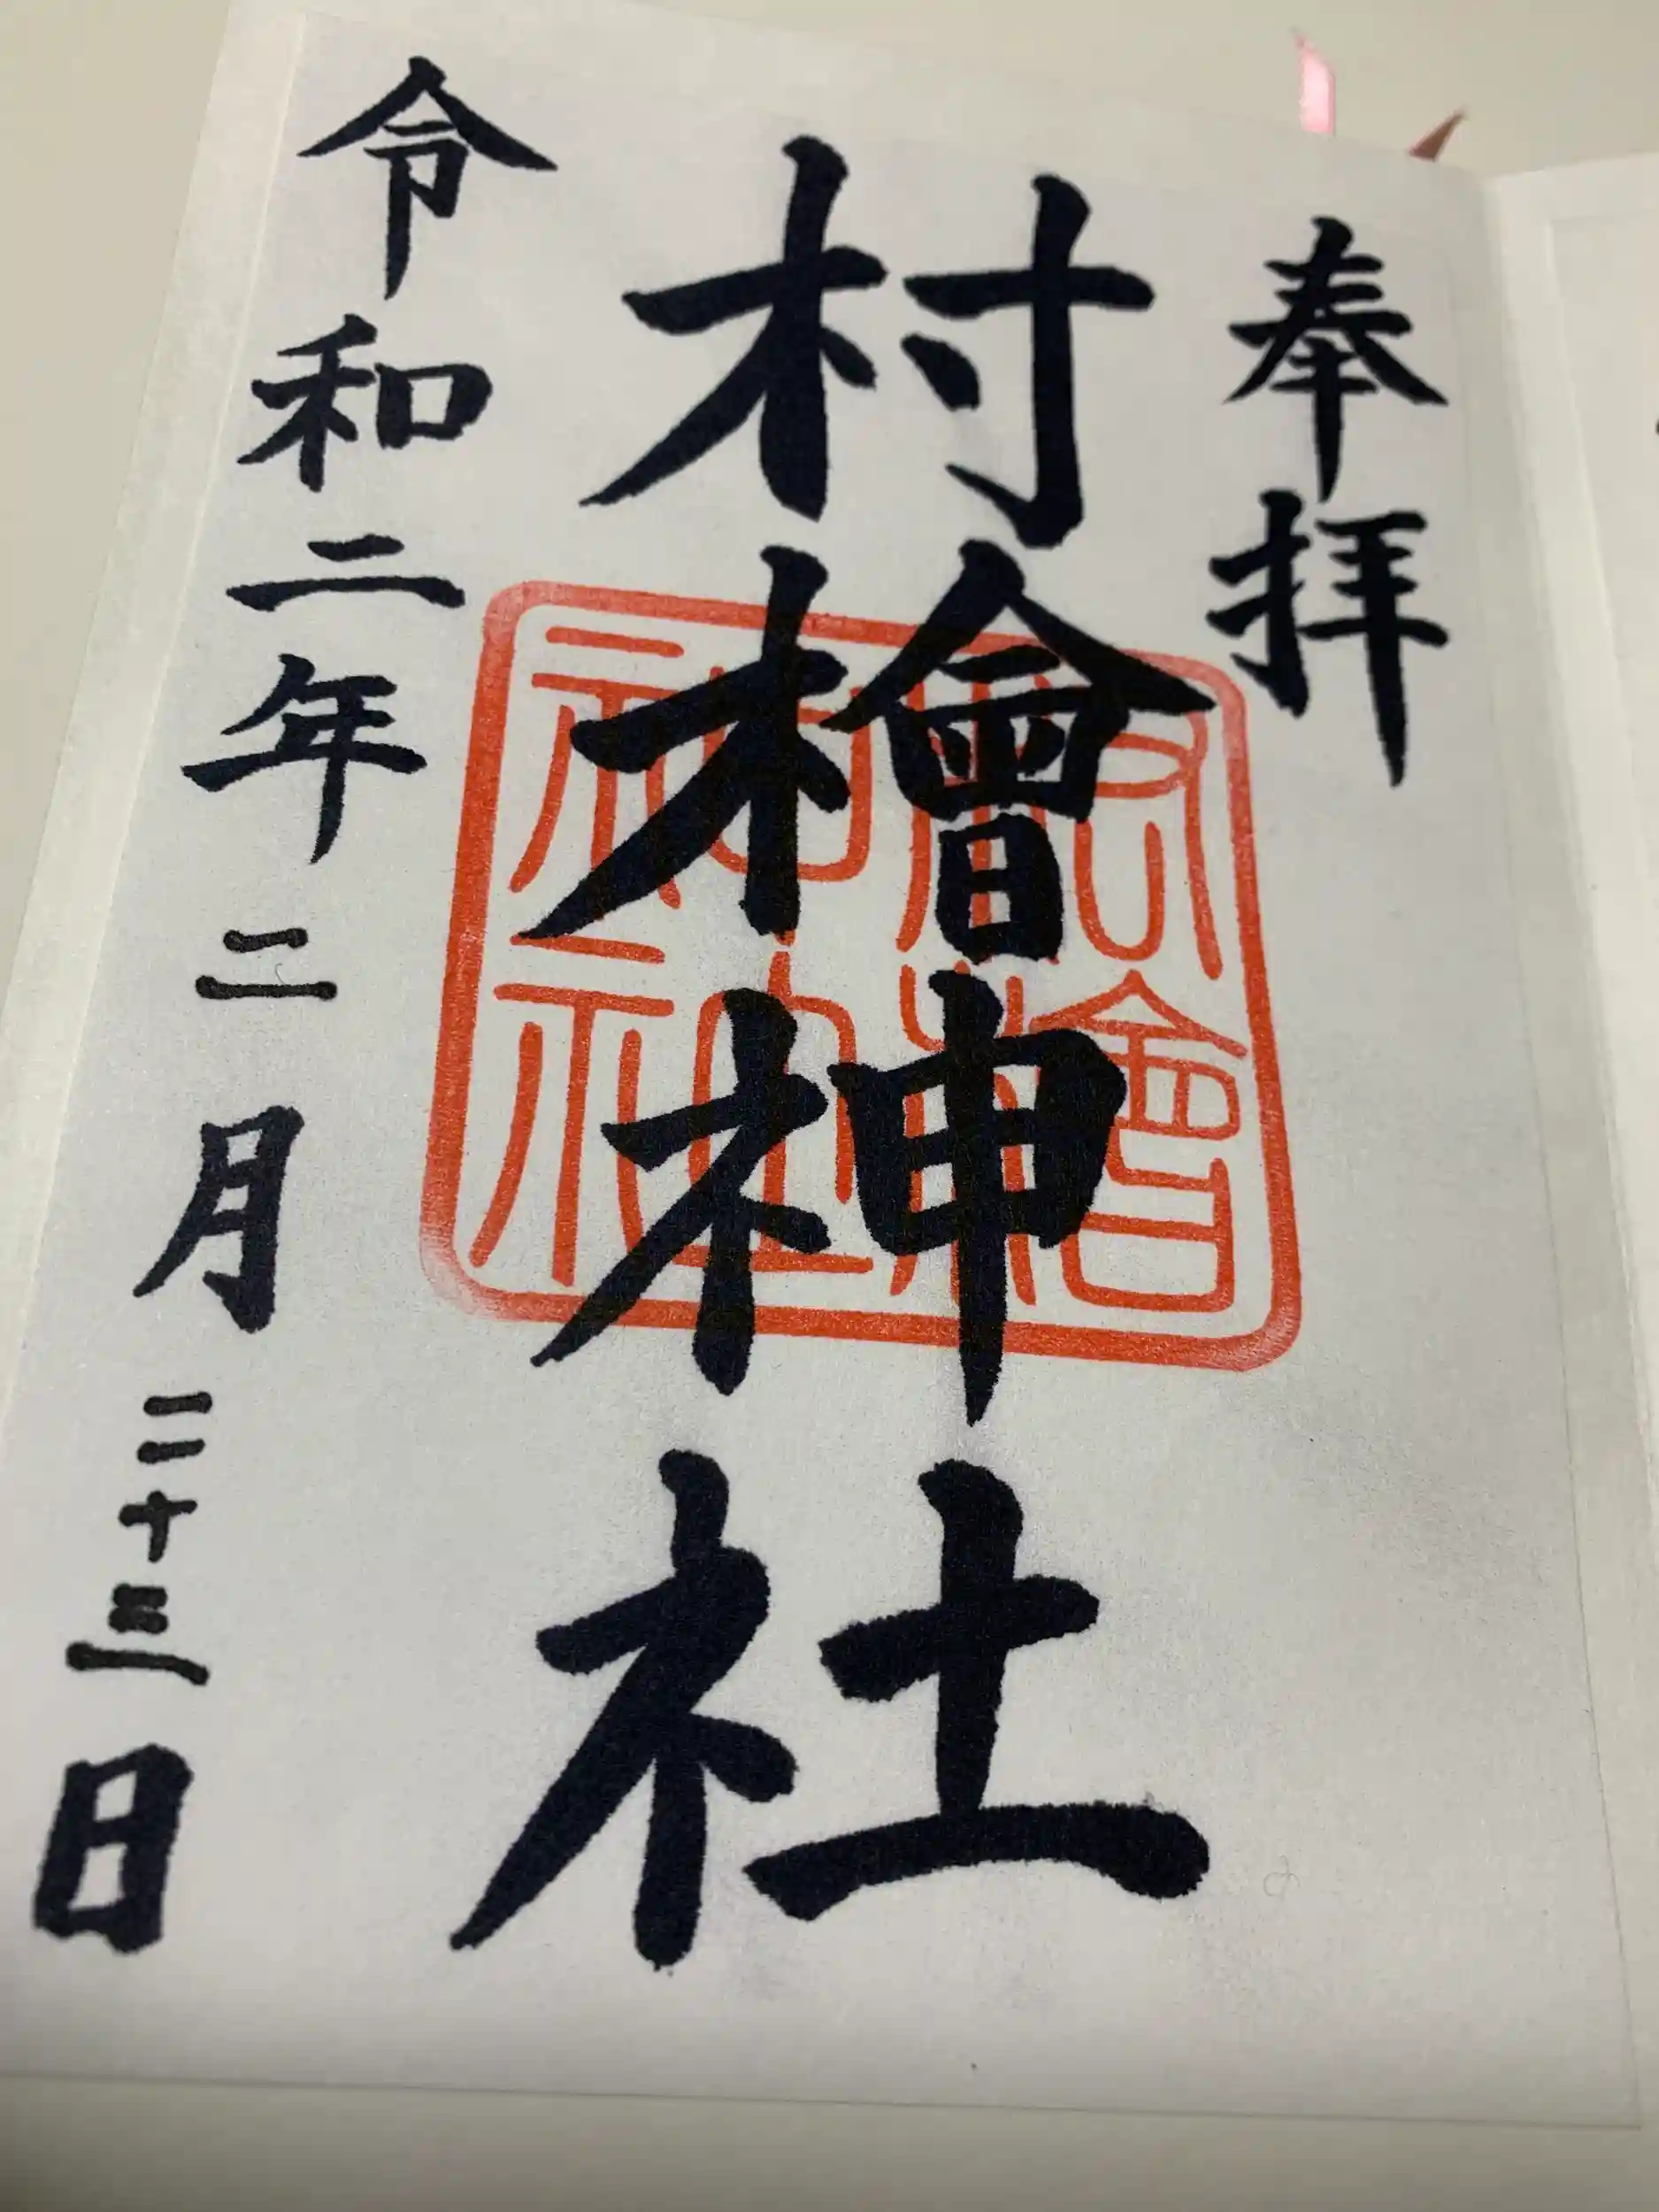 奉拝
村檜神社
村檜
神社
令和二年二月二十三日